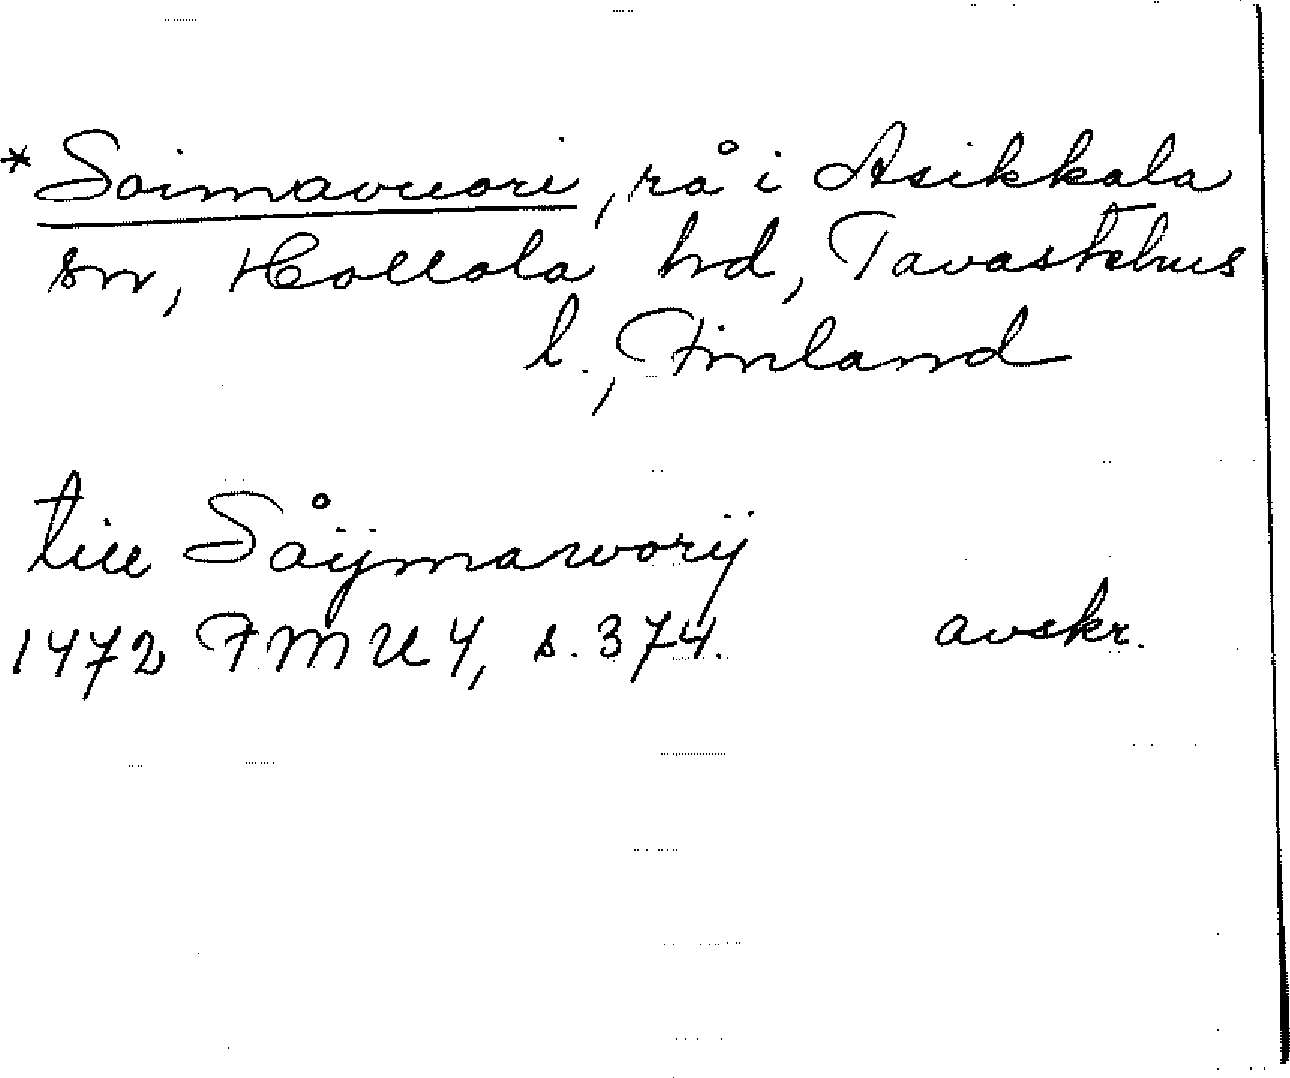 *Soimavuori, rå i Asikkala
sn, Hollola hd, Tavastehus
l., Finland
till Såÿmaworÿ
1472 FMU 4, s. 374. avskr.